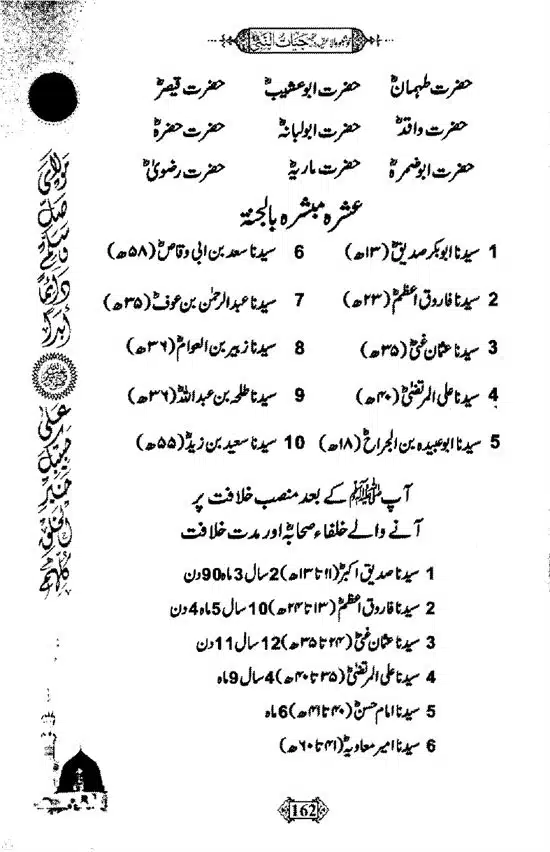 حیات النبیؐ
حضرت طہمانؓ حضرت ابو عشیبؓ حضرت قیصرؓ
حضرت واقدؓ حضرت ابولبابہؓ حضرت حضرہؓ
حضرت ابو ضمرہؓ حضرت ماریہؓ حضرت رضویٰؓ
عشرہ مبشرہ بالجنۃ
1 سیدنا ابوبکر صدیقؓ (۱۳ھ) 6 سیدنا سعد بن ابی وقاصؓ (۵۸ھ)
2 سیدنا فاروق اعظمؓ (۲۳ھ) 7 سیدنا عبدالرحمٰن بن عوفؓ (۳۵ھ)
3 سیدنا عثمان غنیؓ (۳۵ھ) 8 سیدنا زبیر بن العوامؓ (۳۶ھ)
4 سیدنا علی المرتضیٰؓ (۴۰ھ) 9 سیدنا طلحہ بن عبداللہؓ (۳۶ھ)
5 سیدنا ابوعبیدہ بن الجراحؓ (۱۸ھ) 10 سیدنا سعید بن زیدؓ (۵۵ھ)
آپ ﷺ کے بعد منصب خلافت پر
آنے والے خلفاء صحابہؓ اور مدت خلافت
1 سیدنا صدیق اکبرؓ (۱۱ تا ۱۳ھ) 2 سال 3 ماہ 90 دن
2 سیدنا فاروق اعظمؓ (۱۳ تا ۲۴ھ) 10 سال 5 ماہ 4 دن
3 سیدنا عثمان غنیؓ (۲۴ تا ۳۵ھ) 12 سال 11 دن
4 سیدنا علی المرتضیٰؓ (۳۵ تا ۴۰ھ) 4 سال 9 ماہ
5 سیدنا امام حسنؓ (۴۰ تا ۴۱ھ) 6 ماہ
6 سیدنا امیر معاویہؓ (۴۱ تا ۶۰ھ)
162
مولای صل وسلم دائما ابدا
علی حبیبک خیر الخلق کلہم